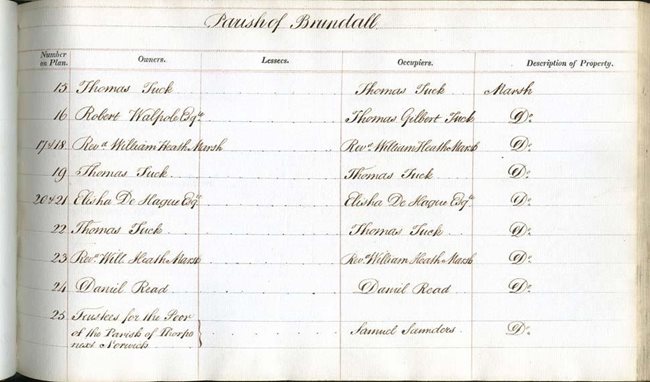 Parish of Brundall
Number on Plan. Owners. Lessees. Occupiers. Description of Property.
15 Thomas Tuck Thomas Tuck Marsh
16 Robert Walpole Esqre Thomas Gilbert Tuck Do
17 & 18 Revd William Heath Marsh Revd William Heath Marsh Do
19 Thomas Tuck Thomas Tuck Do
20 & 21 Elisha De Hague Esqre Elisha De Hague Esqre Do
22 Thomas Tuck Thomas Tuck Do
23 Revd Will Heath Marsh Revd William Heath Marsh Do
24 Daniel Read Daniel Read Do
25 Trustees for the Poor
of the Parish of Thorpe Samuel Saunders Do
next Norwich